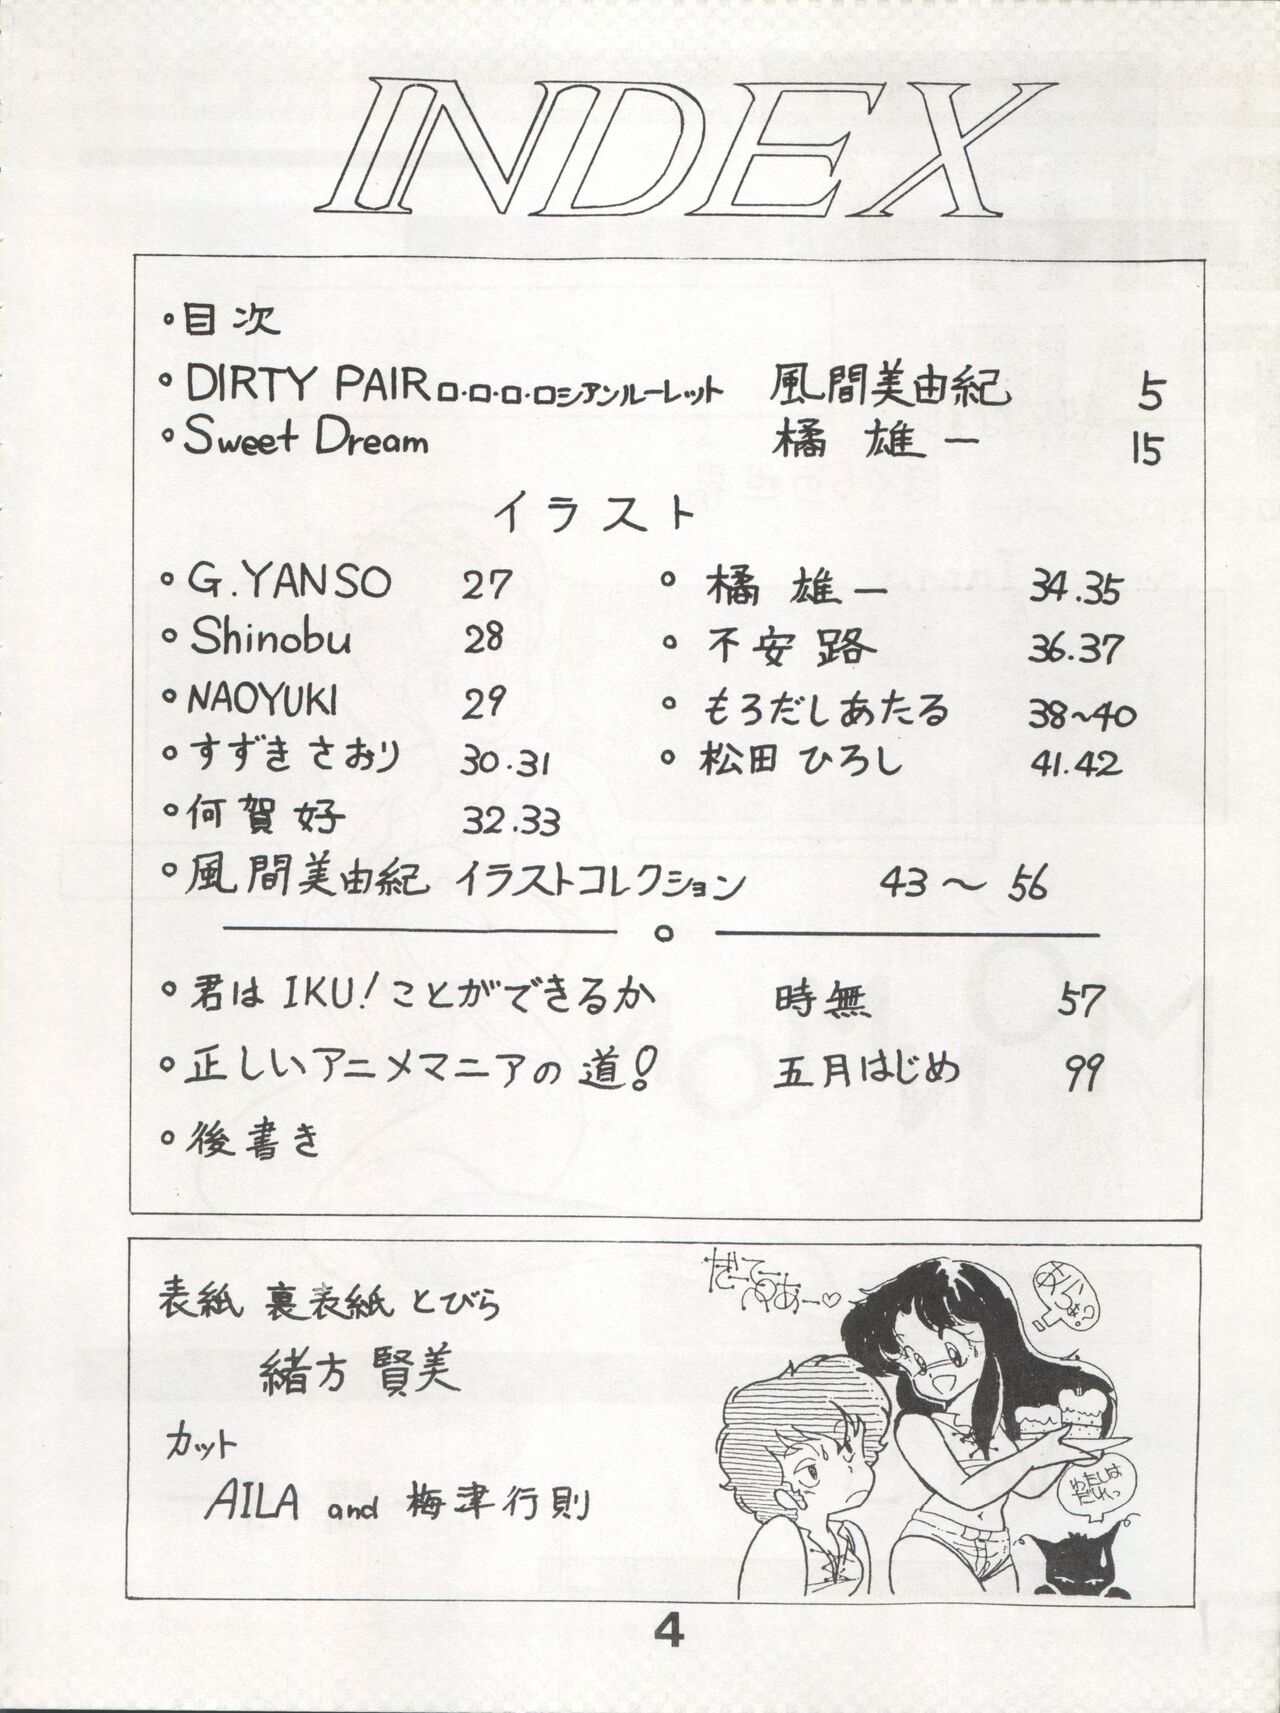 INDEX
•目次
•DIRTY PAIRロ・ロ・ロ・ロシアンルーレット 風間美由紀 5
•Sweet Dream 橘 雄一 15
イラスト
•G.YANSO 27
•Shinobu 28
•NAOYUKI 29
•すずき さおり 30.31
•何賀 好 32.33
•橘 雄一 34.35
•不安 路 36.37
•もろだしあたる 38〜40
•松田 ひろし 41.42
•風間美由紀 イラストコレクション 43〜56
•君は IKU!ことができるか 時無 57
•正しいアニメマニアの道! 五月はじめ 99
•後書き
表紙 裏表紙 とびら
緒方 賢美
カット
AILA and 梅津行則
わたしは
だれっ
4